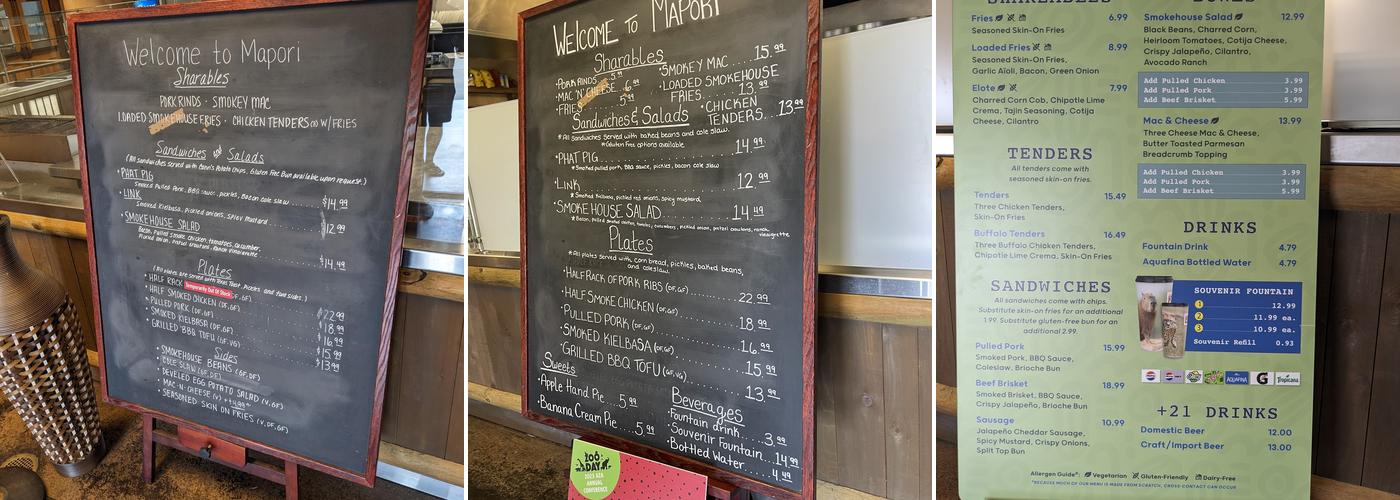 Welcome to Mapori
Sharables
PORK RINDS · SMOKEY MAC
LOADED SMOKEHOUSE FRIES · CHICKEN TENDERS W/ FRIES
Sandwiches and Salads
(All sandwiches served with Potato Chips. Gluten Free Bun available upon request.)
· PHAT PIG
Smoked Pulled Pork, BBQ sauce, pickles, Bacon cole slaw $14.99
· LINK
Smoked Kielbasa, Pickled onions, Spicy Mustard $12.99
· SMOKEHOUSE SALAD
Bacon, Pulled Smoke chicken, tomatoes, cucumber,
Pickled onion, Pretzel croutons, Ranch Vinaigrette $14.49
Plates
(All plates are served with Texas Toast, Pickles and two sides.)
· HALF RACK Temporarily Out Of Stock $22.99
· HALF SMOKED CHICKEN (DF, GF) $18.99
· PULLED PORK (DF, GF) $16.99
· SMOKED KIELBASA (DF, GF) $15.99
· GRILLED BBQ TOFU (DF, VG) $13.99
Sides
· SMOKEHOUSE BEANS (GF, DF)
· COLE SLAW (GF, DF)
· DEVELED EGG POTATO SALAD (V, GF)
· MAC-N-CHEESE (V)
· SEASONED SKIN ON FRIES (V, DF, GF)
WELCOME TO MAPORI
Sharables
· PORK RINDS 5.99
· MAC 'N' CHEESE 6.99
· FRIES 5.99
· SMOKEY MAC 15.99
· LOADED SMOKEHOUSE
FRIES 13.99
· CHICKEN
TENDERS 13.99
Sandwiches & Salads
*All Sandwiches served with baked beans and cole slaw.
*Gluten Free options available
· PHAT PIG 14.99
*Smoked pulled pork, BBQ sauce, pickles, bacon cole slaw
· LINK 12.99
*Smoked Kielbasa, pickled red onions, spicy mustard
· SMOKEHOUSE SALAD 14.49
*Bacon, Pulled Smoked chicken, tomatoes, cucumbers, pickled onion, pretzel croutons, ranch
vinaigrette
Plates
*All plates served with corn bread, pickles, baked beans,
and coleslaw.
· HALF RACK OF PORK RIBS (DF, GF) 22.99
· HALF SMOKE CHICKEN (DF, GF) 18.99
· PULLED PORK (DF, GF) 16.99
· SMOKED KIELBASA (DF, GF) 15.99
· GRILLED BBQ TOFU (DF, VG) 13.99
Sweets
· Apple Hand Pie 5.99
· Banana Cream Pie 5.99
Beverages
· Fountain drink 3.99
· Souvenir Fountain 14.99
· Bottled Water 4.49
ZOO
DAY
2023 AZA
ANNUAL
CONFERENCE
SHAREABLES
Fries 6.99
Seasoned Skin-On Fries
Loaded Fries 8.99
Seasoned Skin-On Fries,
Garlic Aïoli, Bacon, Green Onion
Elote 7.99
Charred Corn Cob, Chipotle Lime
Crema, Tajin Seasoning, Cotija
Cheese, Cilantro
TENDERS
All tenders come with
seasoned skin-on fries.
Tenders 15.49
Three Chicken Tenders,
Skin-On Fries
Buffalo Tenders 16.49
Three Buffalo Chicken Tenders,
Chipotle Lime Crema, Skin-On Fries
SANDWICHES
All sandwiches come with chips.
Substitute skin-on fries for an additional
1.99. Substitute gluten-free bun for an
additional 2.99.
Pulled Pork 15.99
Smoked Pork, BBQ Sauce,
Coleslaw, Brioche Bun
Beef Brisket 18.99
Smoked Brisket, BBQ Sauce,
Crispy Jalapeño, Brioche Bun
Sausage 10.99
Jalapeño Cheddar Sausage,
Spicy Mustard, Crispy Onions,
Split Top Bun
BOWLS
Smokehouse Salad 12.99
Black Beans, Charred Corn,
Heirloom Tomatoes, Cotija Cheese,
Crispy Jalapeño, Cilantro,
Avocado Ranch
Add Pulled Chicken 3.99
Add Pulled Pork 3.99
Add Beef Brisket 5.99
Mac & Cheese 13.99
Three Cheese Mac & Cheese,
Butter Toasted Parmesan
Breadcrumb Topping
Add Pulled Chicken 3.99
Add Pulled Pork 3.99
Add Beef Brisket 5.99
DRINKS
Fountain Drink 4.79
Aquafina Bottled Water 4.79
SOUVENIR FOUNTAIN
1 12.99
2 11.99 ea.
3 10.99 ea.
Souvenir Refill 0.93
AQUAFINA
G
Tropicana
+21 DRINKS
Domestic Beer 12.00
Craft/Import Beer 13.00
Allergen Guide*: Vegetarian Gluten-Friendly Dairy-Free
*BECAUSE MUCH OF OUR MENU IS MADE FROM SCRATCH, CROSS-CONTACT CAN OCCUR